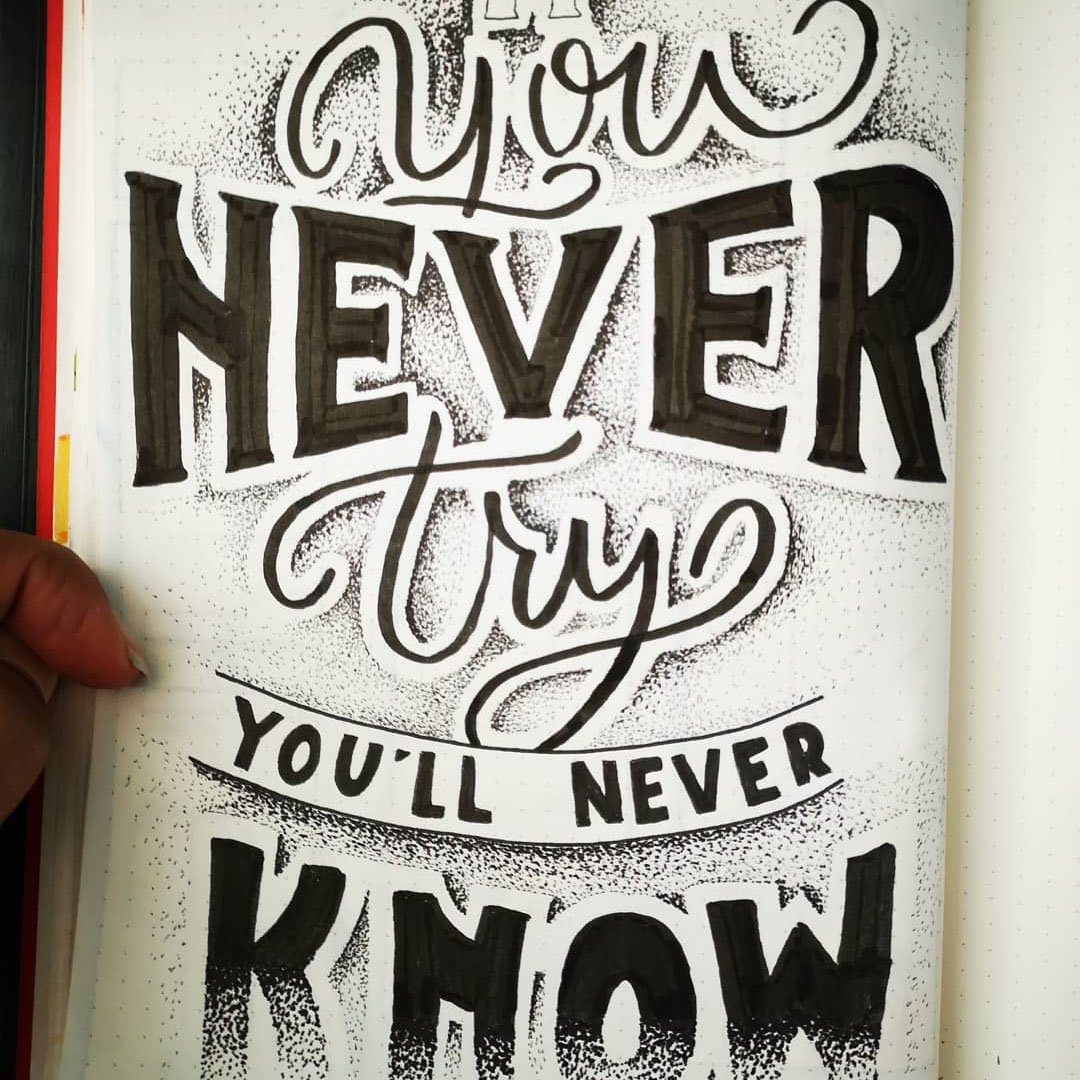 You
NEVER
try
YOU'LL NEVER
KNOW